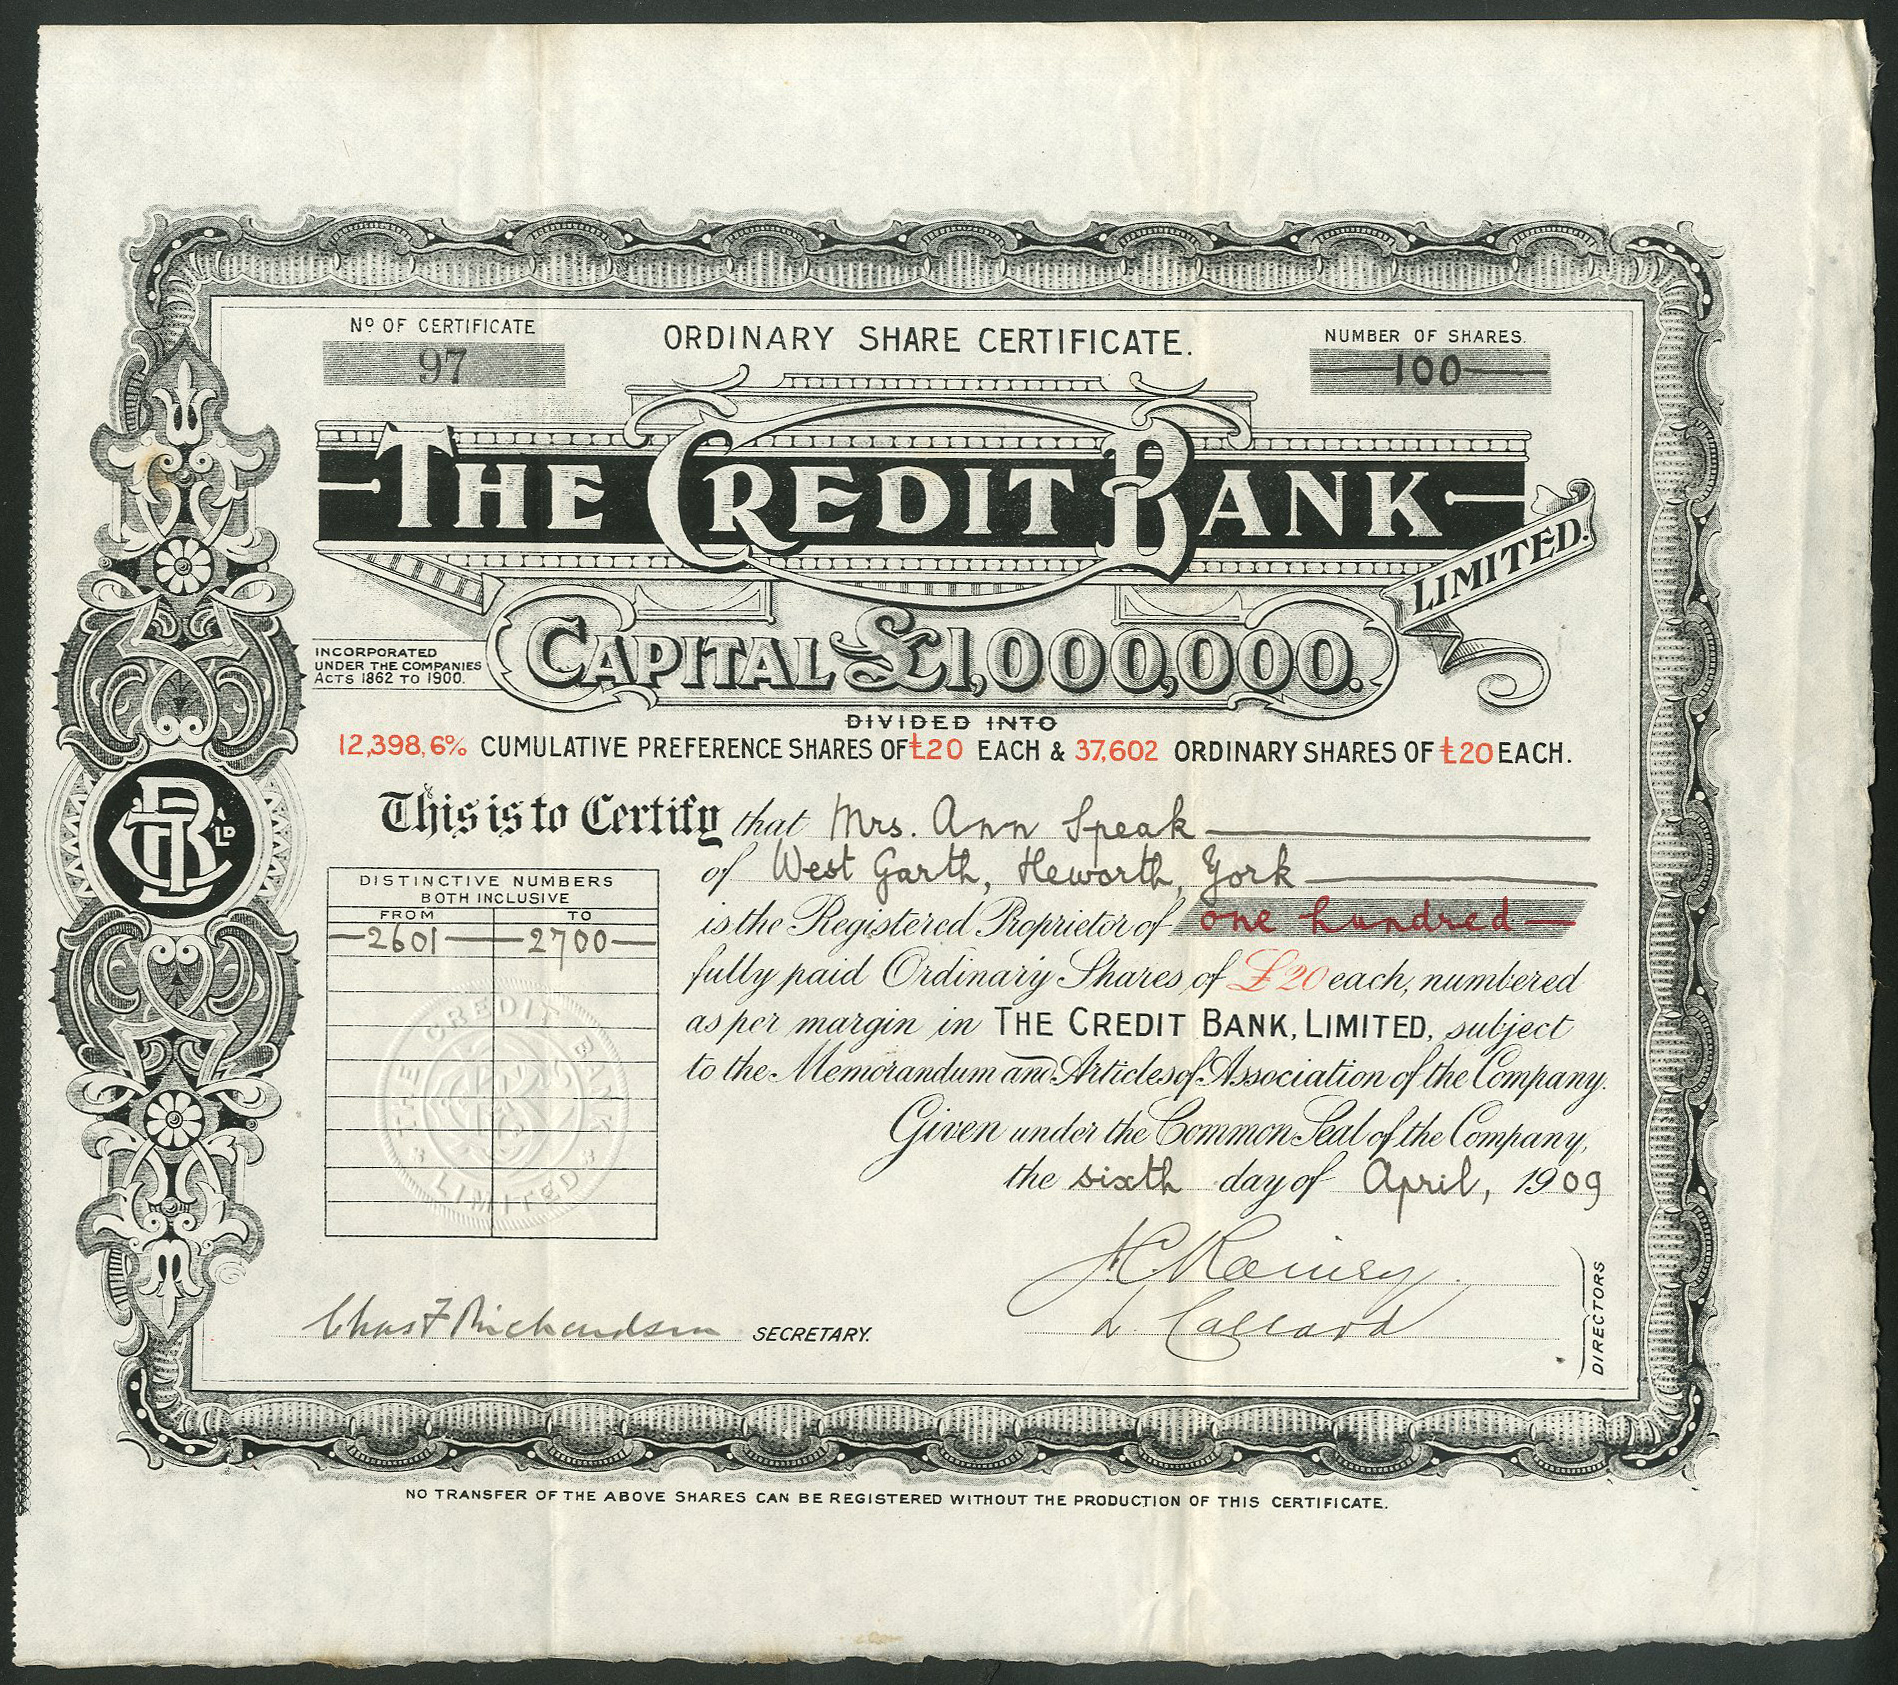 Nº OF CERTIFICATE
97
ORDINARY SHARE CERTIFICATE.
NUMBER OF SHARES.
100
THE CREDIT BANK
LIMITED.
CAPITAL £1,000,000.
INCORPORATED
UNDER THE COMPANIES
ACTS 1862 TO 1900.
DIVIDED INTO
12,398, 6% CUMULATIVE PREFERENCE SHARES OF £20 EACH & 37,602 ORDINARY SHARES OF £20 EACH.
This is to Certify that Mrs. Ann Speak
of West Garth, Heworth, York
is the Registered Proprietor of one hundred
fully paid Ordinary Shares of £20 each, numbered
as per margin in THE CREDIT BANK, LIMITED, subject
to the Memorandum and Articles of Association of the Company.
Given under the Common Seal of the Company,
the sixth day of April, 1909
DISTINCTIVE NUMBERS
BOTH INCLUSIVE
FROM TO
2601 2700
THE CREDIT BANK
LIMITED
CB LD
Chas F Richardson SECRETARY.
L. Callard
DIRECTORS
NO TRANSFER OF THE ABOVE SHARES CAN BE REGISTERED WITHOUT THE PRODUCTION OF THIS CERTIFICATE.